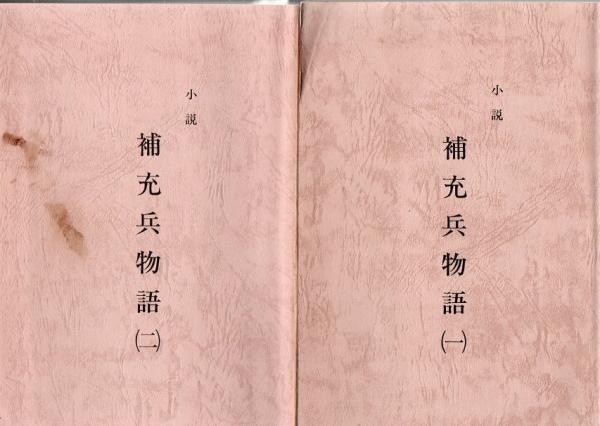 小説
補充兵物語(一)
小説
補充兵物語(二)